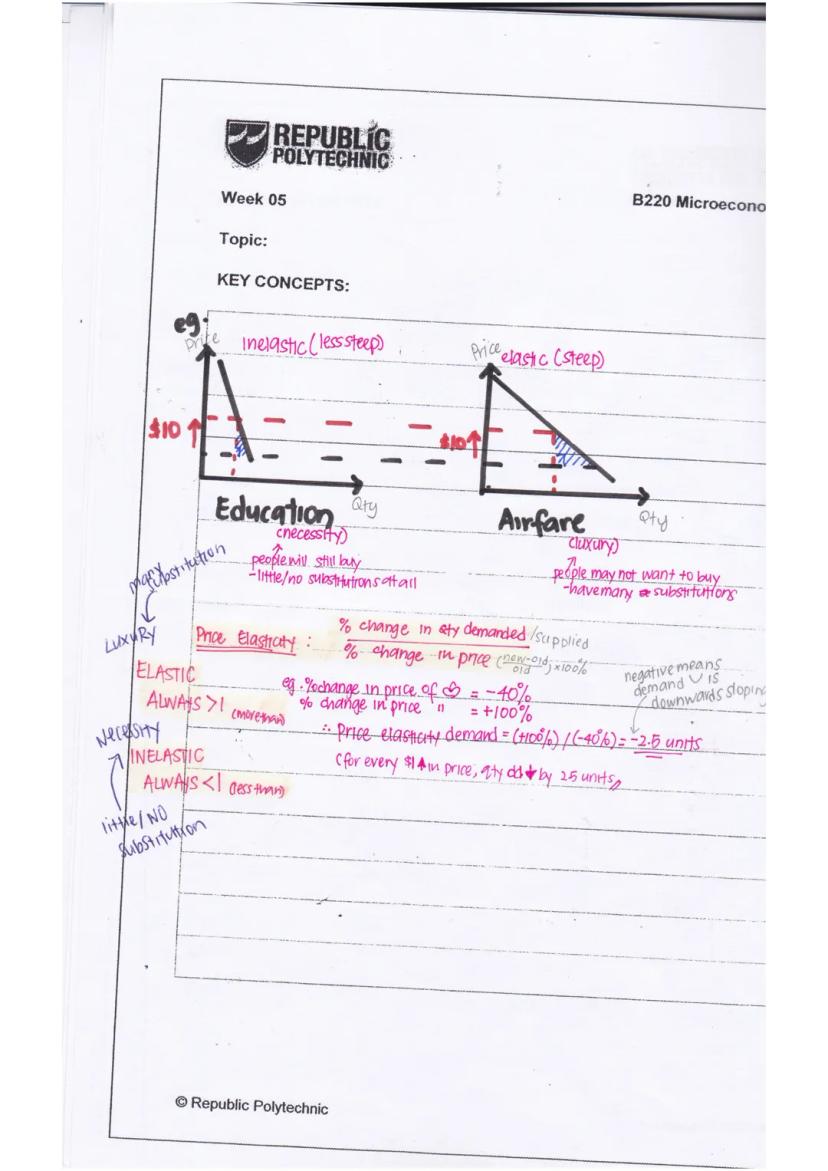 REPUBLIC
POLYTECHNIC
Week 05
B220 Microecono
Topic:
KEY CONCEPTS:
eg.
Price
inelastic (less steep)
$10 ↑
Qty
Education
(necessity)
people will still buy
-little/no substitutions at all
Price
elastic (steep)
$10 ↑
Qty
Airfare
(luxury)
people may not want to buy
-have many substitutions
many substitution
LUXURY
Price Elasticity : % change in qty demanded/supplied
% change in price (new-old/old) x100%
ELASTIC
ALWAYS >1 (more than)
eg. % change in price of = -40%
% change in price " = +100%
∴ Price elasticity demand = (+100%) / (-40%) = -2.5 units
(for every $1 ↑ in price, qty dd ↓ by 2.5 units,
negative means
demand is
downwards sloping
Necessity
INELASTIC
ALWAYS <1 (less than)
little/NO
substitution
© Republic Polytechnic